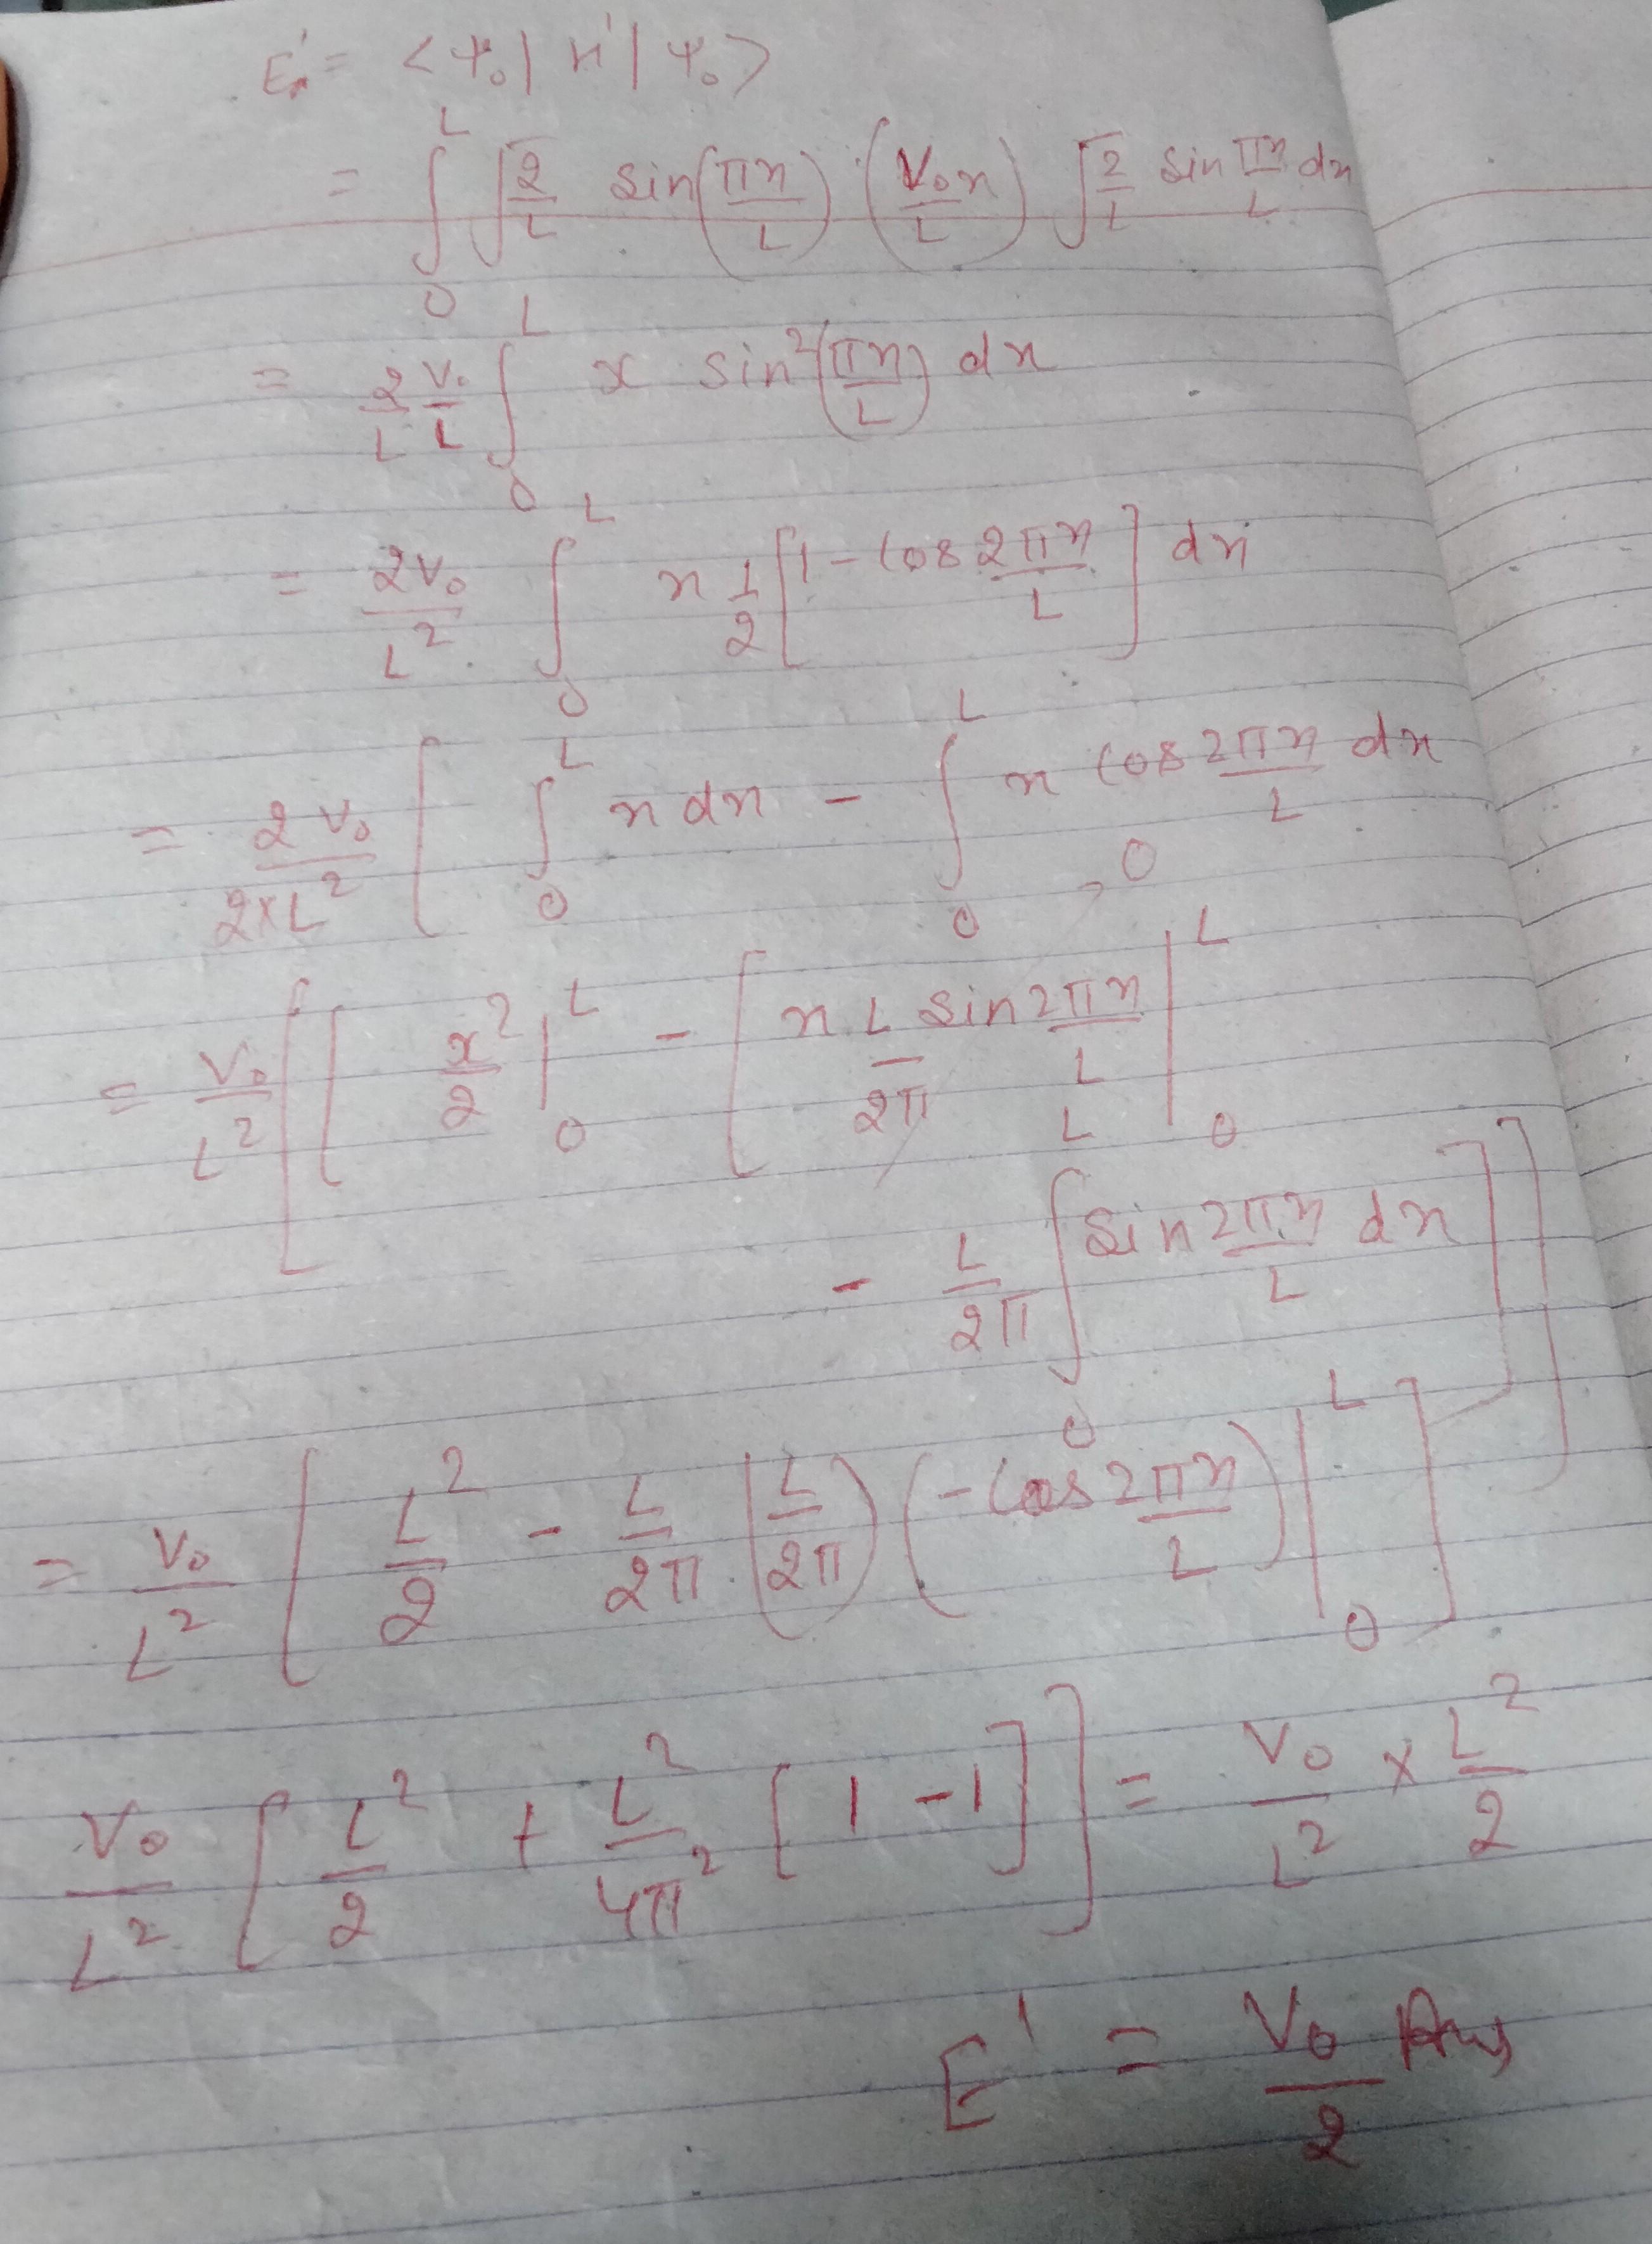 E₁' = <ψ₀| H' |ψ₀>
= ∫₀ᴸ √(2/L) sin(πx/L) (V₀x/L) √(2/L) sin πx/L dx
= 2/L V₀/L ∫₀ᴸ x sin²(πx/L) dx
= 2V₀/L² ∫₀ᴸ x 1/2 [1 - cos 2πx/L] dx
= 2V₀/2×L² [ ∫₀ᴸ x dx - ∫₀ᴸ x cos 2πx/L dx
= V₀/L² [ [ x²/2 |₀ᴸ - [ x L/2π sin 2πx/L |₀ᴸ → 0
- L/2π ∫₀ᴸ sin 2πx/L dx ] ]
= V₀/L² [ L²/2 - L/2π (L/2π) (-cos 2πx/L) |₀ᴸ ]
V₀/L² [ L²/2 + L²/4π² [1 - 1] ] = V₀/L² × L²/2
E' = V₀/2 Ans